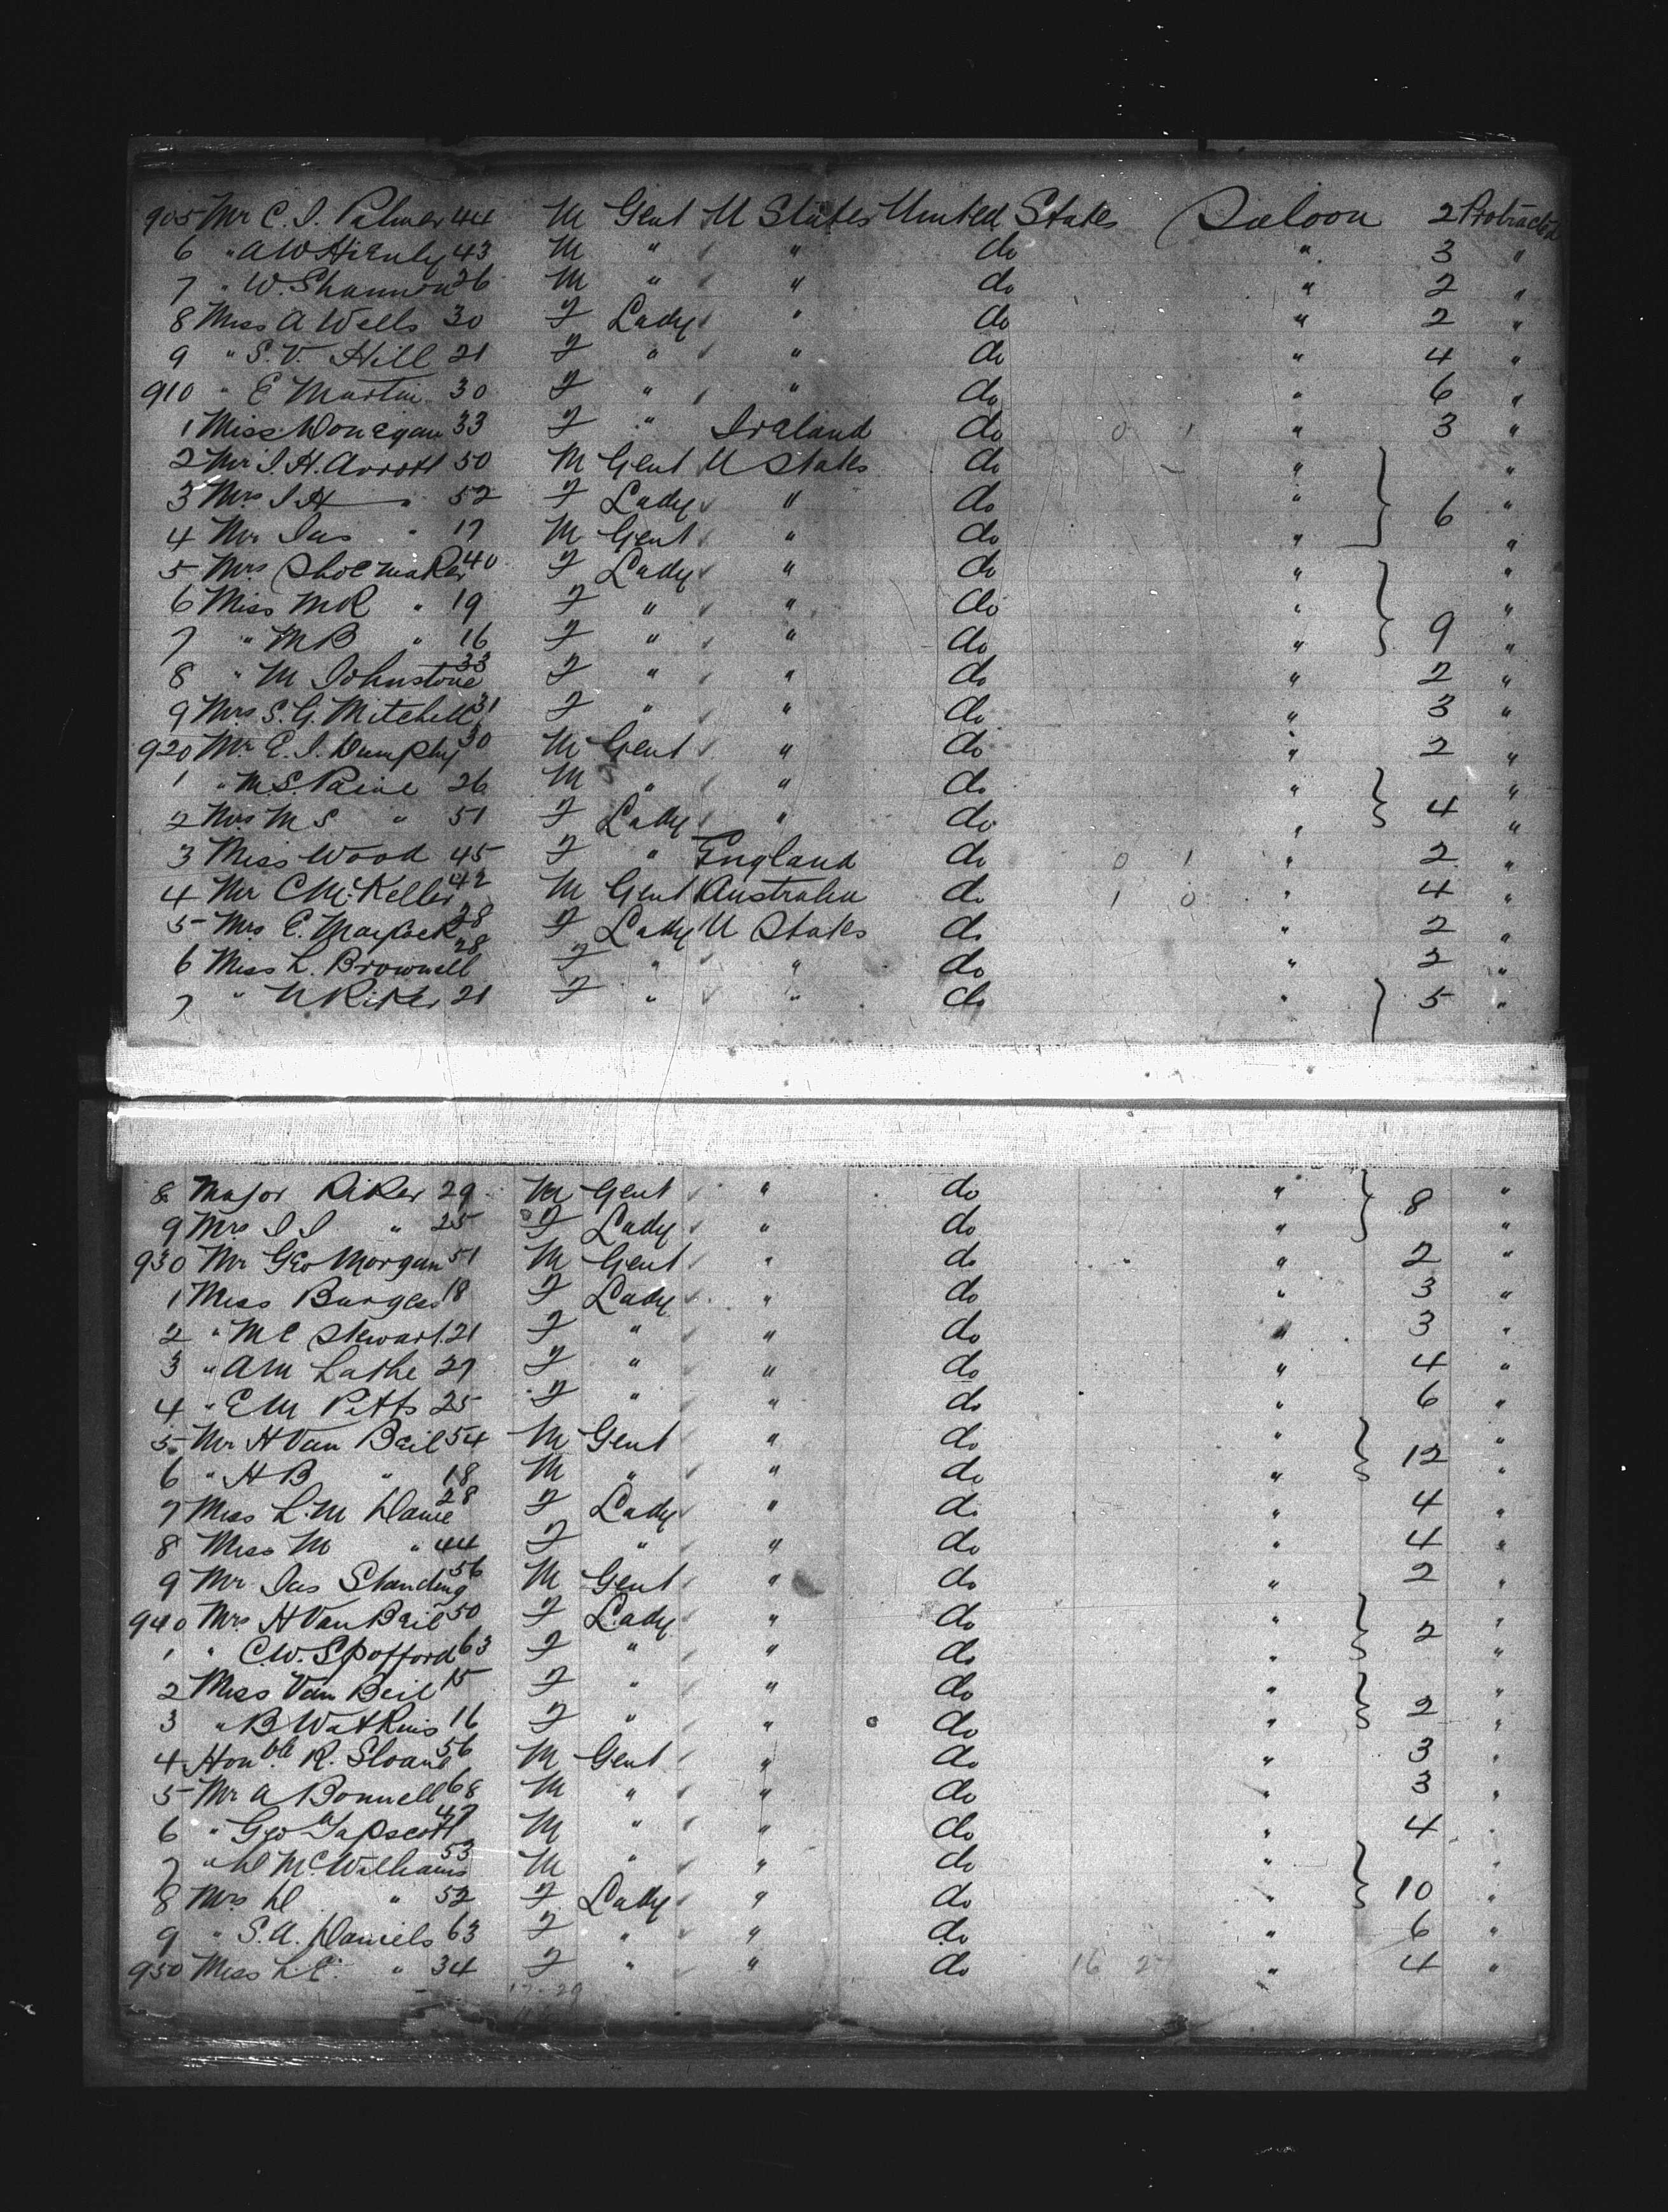 905 Mr C. J. Palmer 44 M Gent U States United States Saloon 2 Protracted
6 " A W 43 M " " do " 3 "
7 " W. Shannon 26 M " " do " 2 "
8 Miss A Wells 30 F Lady " do " 2 "
9 " S. V. Hill 21 F " " do " 4 "
910 " E Martin 30 F " " do " 6 "
1 Miss Donegan 33 F " Ireland do 0 1 " 3 "
2 Mr J. H. Arrott 50 M Gent U States do " "
3 Mrs J H " 52 F Lady " do " 6 "
4 Mr Jas " 17 M Gent " do " "
5 Mrs Shoemaker 40 F Lady " do " "
6 Miss M R " 19 F " " do " "
7 " M B " 16 F " " do " 9 "
8 " M Johnstone 33 F " " do " 2 "
9 Mrs S. G. Mitchell 31 F " " do " 3 "
920 Mr E. J. Dumphy 30 M Gent " do " 2 "
1 " M. S. Paine 26 M " " do " "
2 Mrs M S " 51 F Lady " do " 4 "
3 Miss Wood 45 F " England do 0 1 " 2 "
4 Mr C McKeller 42 M Gent Australia do 1 0 " 4 "
5 Mrs E. 28 F Lady U States do " 2 "
6 Miss L. Brownell 28 F " " do " 2 "
7 " N Riker 21 F " " do " 5 "
8 Major Riker 29 M Gent " do " 8 "
9 Mrs J J " 25 F Lady " do " "
930 Mr Geo Morgan 51 M Gent " do " 2 "
1 Miss Burgess 18 F Lady " do " 3 "
2 " M E Stewart 21 F " " do " 3 "
3 " A M Lathe 27 F " " do " 4 "
4 " E M Pitts 25 F " " do " 6 "
5 Mr H Van Beil 54 M Gent " do " "
6 " H B " 18 M " " do " 12 "
7 Miss L. M Dame 28 F Lady " do " 4 "
8 Miss M " 44 F " " do " 4 "
9 Mr Jas Standing 56 M Gent " do " 2 "
940 Mrs H Van Beil 50 F Lady " do " 2 "
1 " C. W. Spofford 63 F " " do " "
2 Miss Van Beil 15 F " " do " "
3 " B Watkins 16 F " " do " 2 "
4 Honble R. Sloane 56 M Gent " do " 3 "
5 Mr A Bonnell 68 M " " do " 3 "
6 " Geo A Tapscott 47 M " " do " 4 "
7 " D McWilliams 53 M " " do " "
8 Mrs D " 52 F Lady " do " 10 "
9 " S. A. Daniels 63 F " " do " 6 "
950 Miss L. E. " 34 F " " do 16 2 " 4 "